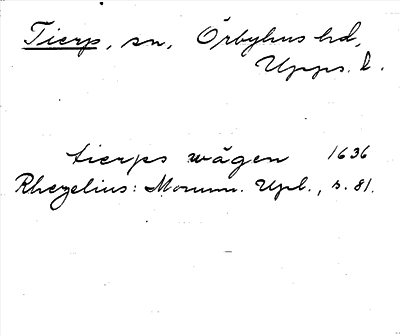 Tierp, sn, Örbyhus hd,
Upps. l.
tierps wägen 1636
Rhezelius: Monum. Upl., s. 81.